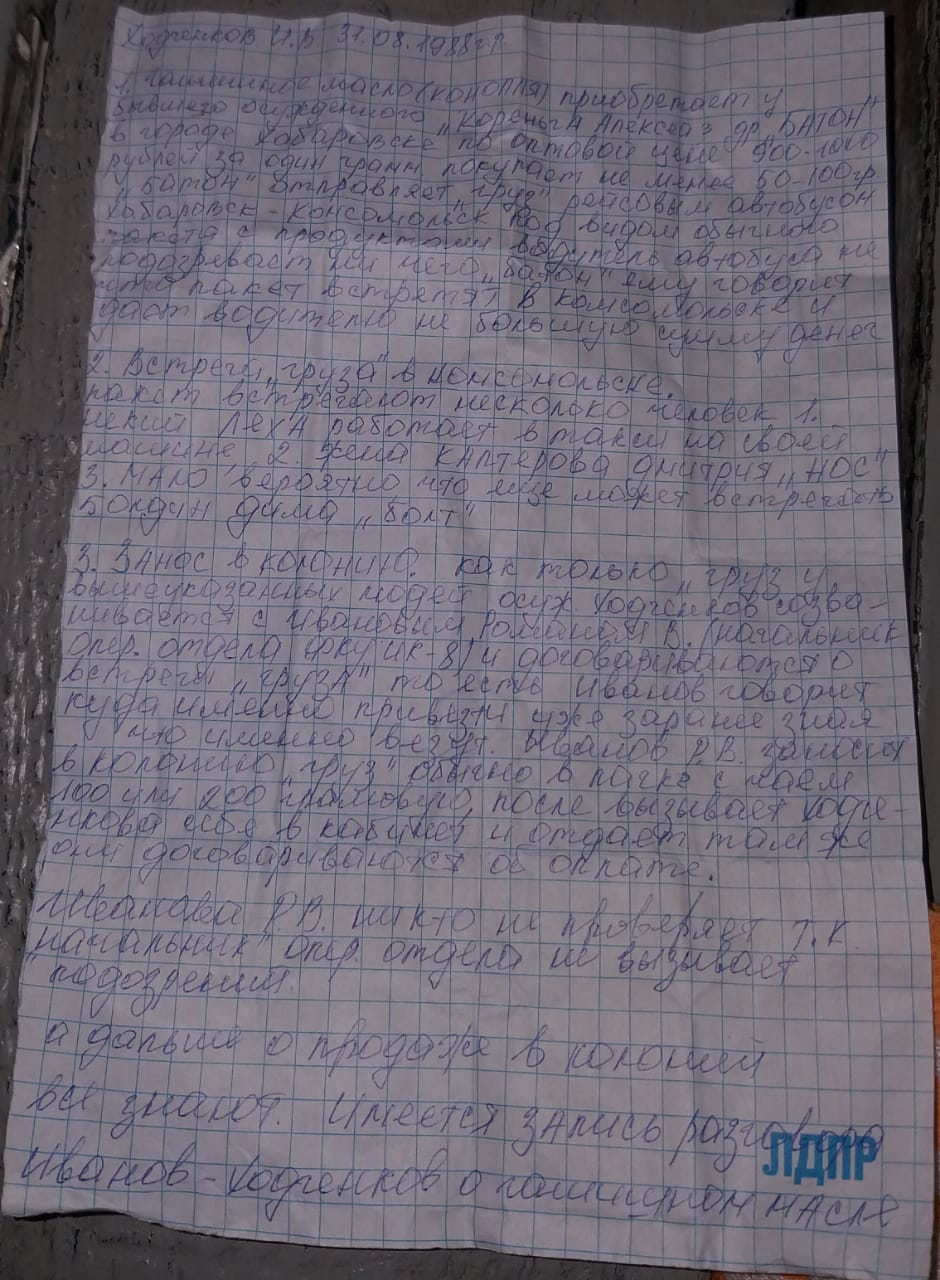 Ходченков И.В 31.08.1988г.р
1. Гашишное масло (конопля) приобретает у
бывшего осужденного "Кореньгя Алексеа з др. БАТОН"
в городе Хабаровске по оптовой цене 900-1000
рублей за один грамм покупает не менее 50-100гр.
"Батон" отправляет "груз" рейсовым автобусом
Хабаровск-Комсомольск под видом обычного
пакета с продуктами водитель автобуса не
подозревает ни чего "батон" ему говорит
что пакет встретят в Комсомольске и
дает водителю не большую сумму денег
2. Встреча "груза" в Комсомольске.
пакет встречают несколько человек 1.
некий Лёха работает в такси на своей
машине 2. жена Каптерова Дмитрия "НОС"
3. МАЛО вероятно что еще может встречать
Болдин Дима "Болт"
3. Занос в колонию. как только "груз у
вышеуказанных людей осуж. Ходченков созва-
нивается с Ивановым Романом В. (начальник
опер. отдела ФКУ ИК-8) и договариваются о
встречи "груза" то есть Иванов говорит
куда именно привезти уже заранее зная
что именно везут. Иванов Р.В. заносит
в колонию "груз" обычно в пачке с чаем
100 или 200 грамовую, после вызывает Ходче-
нкова себя в кабинет и отдает там же
они договариваются об оплате.
Иванова Р.В. ни кто не проверяет т.к
начальник" опер. отдела не вызывает
"подозрений.
а дальше о продаже в колонией
все знают. Имеется запись разговора
Иванов-Ходченков о гашишном масле
ЛДПР